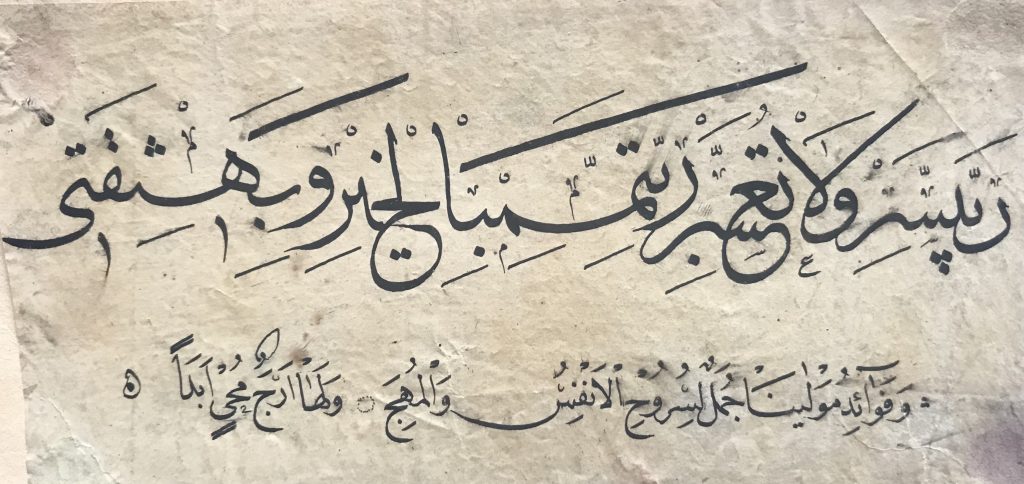 رَبِّ يَسِّرْ وَلَا تُعَسِّرْ رَبِّ تَمِّمْ بِالْخَيْرِ وَبِهِ ثِقَتِي
وَفَوَآئِدُ مَوْلٰينَا جُمَلٌ لِسُرُوحِ الْاَنْفُسِ وَالْمُهَجِ وَلَهَا اَرَجٌ مُحْيٍ اَبَدًا